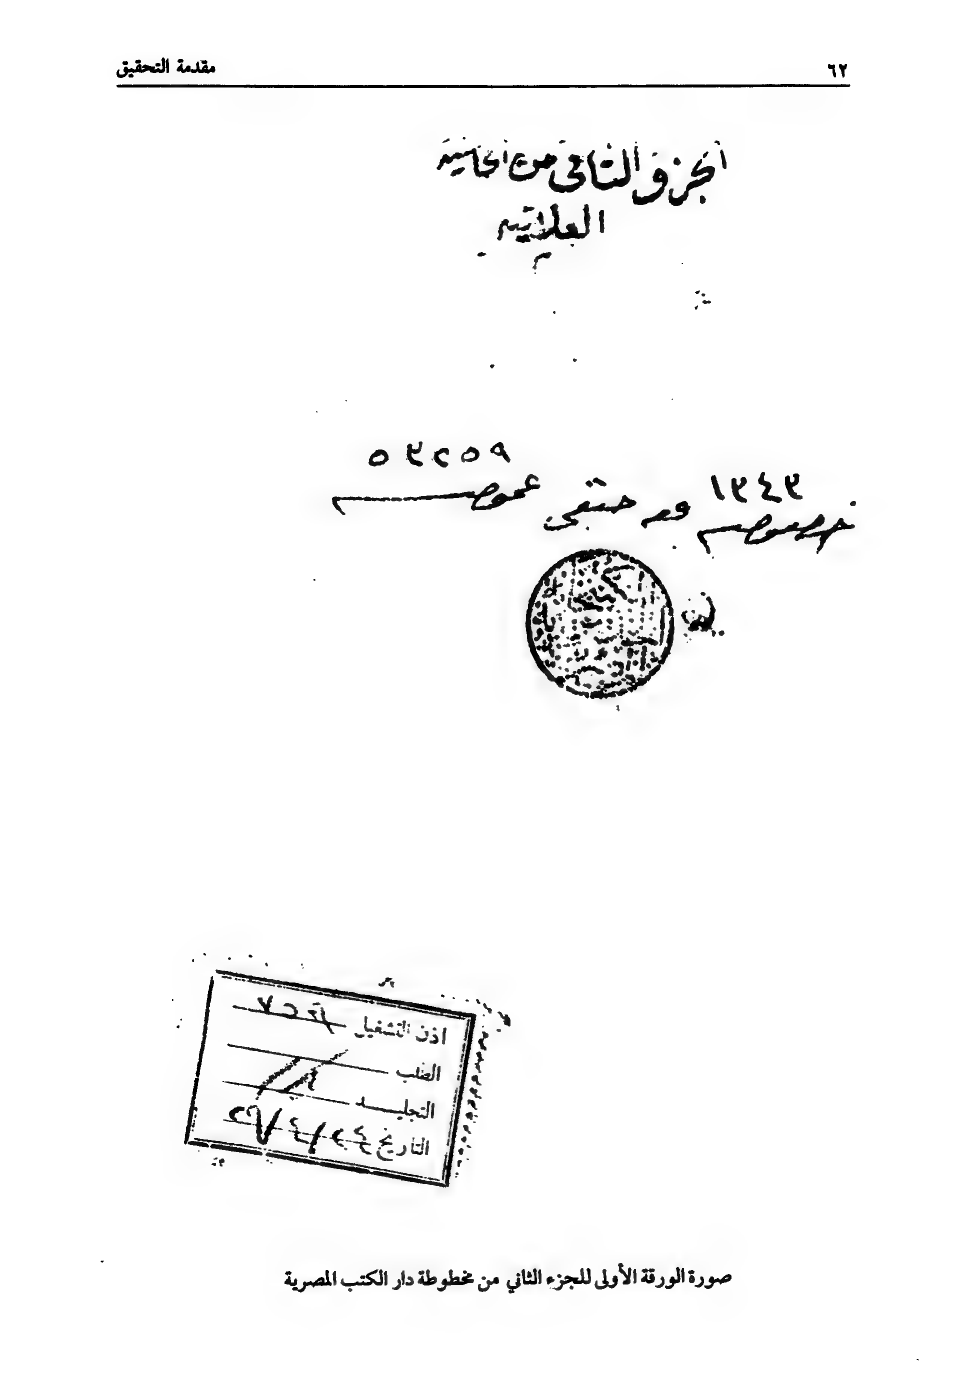 ٦٢ مقدمة التحقيق
الجزؤ الثاني من الحاشية
العلائيه
٥٣٢٥٩
١٣٤٣
خصوصه فقه حنفي عموصه
اذن التشغيل
الطلب
التجليد
التاريخ
صورة الورقة الأولى للجزء الثاني من مخطوطة دار الكتب المصرية